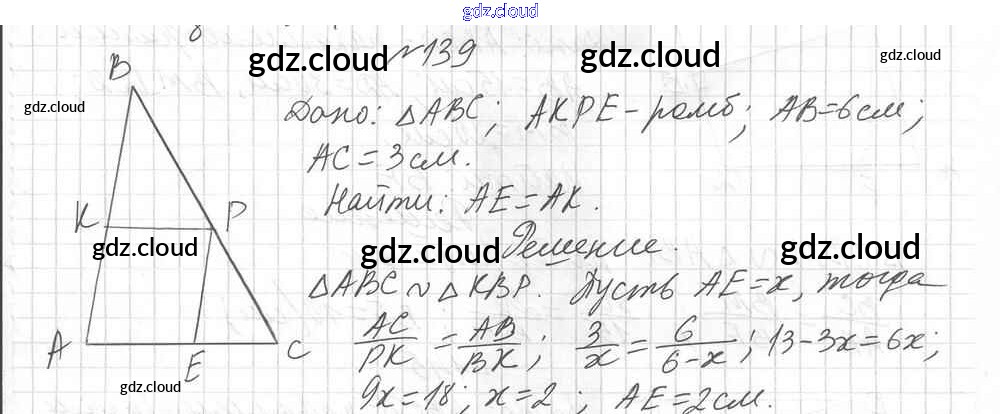 gdz.cloud
№139
gdz.cloud gdz.cloud gdz.cloud
B
gdz.cloud
Дано: △ABC; AKPE - ромб; AB=6см;
AC=3см.
Найти: AE=AK.
K P
gdz.cloud gdz.cloud Решение. gdz.cloud
△ABC ~ △KBP. Пусть AE=x, тогда
AC/PK = AB/BK; 3/x = 6/(6-x); 13-3x=6x;
A E C
gdz.cloud
9x=18; x=2; AE=2см.